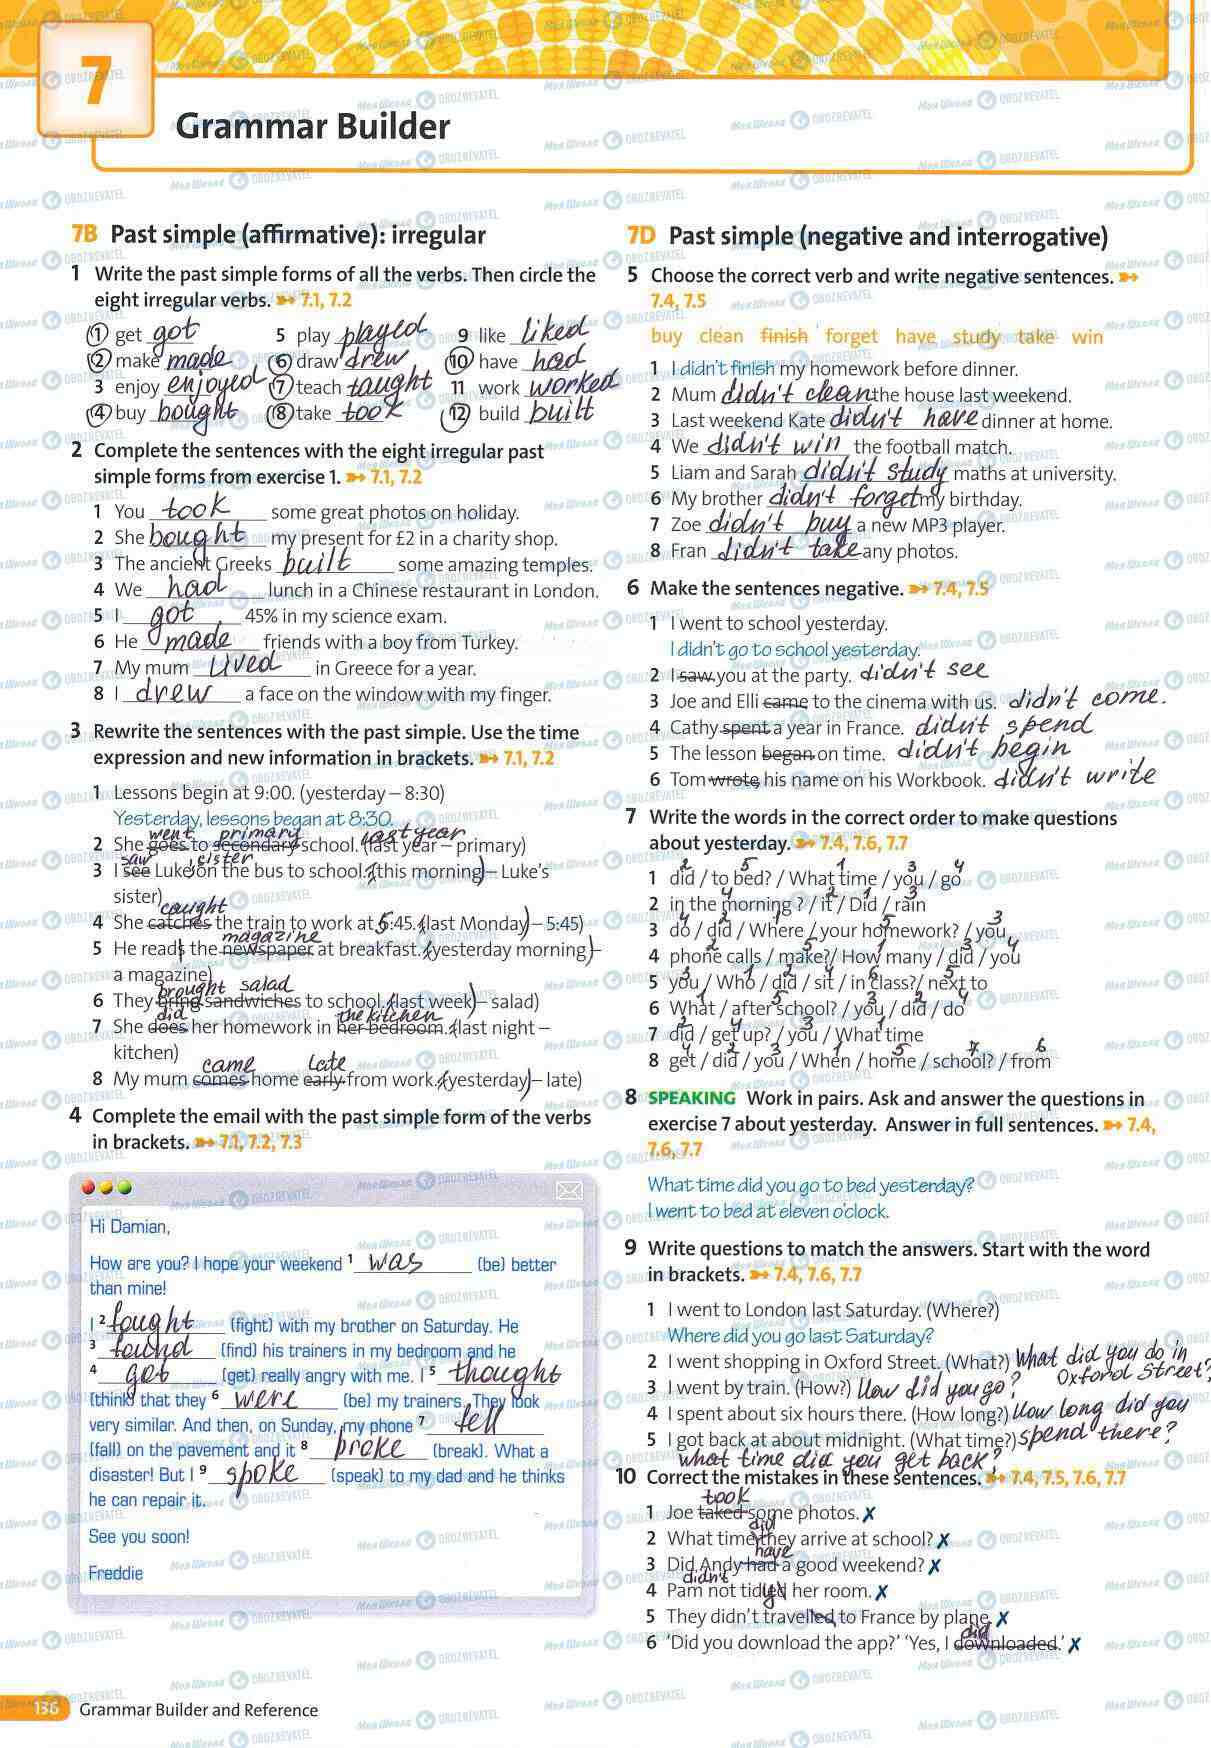 7
Grammar Builder
7B Past simple (affirmative): irregular
1 Write the past simple forms of all the verbs. Then circle the
eight irregular verbs. 7.1, 7.2
1 get got 5 play played 9 like liked
2 make made 6 draw drew 10 have had
3 enjoy enjoyed 7 teach taught 11 work worked
4 buy bought 8 take took 12 build built
2 Complete the sentences with the eight irregular past
simple forms from exercise 1. 7.1, 7.2
1 You took some great photos on holiday.
2 She bought my present for £2 in a charity shop.
3 The ancient Greeks built some amazing temples.
4 We had lunch in a Chinese restaurant in London.
5 I got 45% in my science exam.
6 He made friends with a boy from Turkey.
7 My mum lived in Greece for a year.
8 I drew a face on the window with my finger.
3 Rewrite the sentences with the past simple. Use the time
expression and new information in brackets. 7.1, 7.2
1 Lessons begin at 9:00. (yesterday – 8:30)
Yesterday, lessons began at 8:30.
went primary last year
2 She goes to secondary school. (last year – primary)
saw 's sister
3 I see Luke on the bus to school. (this morning – Luke's
sister)
caught
4 She catches the train to work at 6:45. (last Monday – 5:45)
magazine
5 He reads the newspaper at breakfast. (yesterday morning –
a magazine)
brought salad
6 They bring sandwiches to school. (last week – salad)
did the kitchen
7 She does her homework in her bedroom. (last night –
kitchen)
came late
8 My mum comes home early from work. (yesterday – late)
4 Complete the email with the past simple form of the verbs
in brackets. 7.1, 7.2, 7.3
Hi Damian,
How are you? I hope your weekend 1 was (be) better
than mine!
I 2 fought (fight) with my brother on Saturday. He
3 found (find) his trainers in my bedroom and he
4 got (get) really angry with me. I 5 thought
(think) that they 6 were (be) my trainers. They look
very similar. And then, on Sunday, my phone 7 fell
(fall) on the pavement and it 8 broke (break). What a
disaster! But I 9 spoke (speak) to my dad and he thinks
he can repair it.
See you soon!
Freddie
136 Grammar Builder and Reference
7D Past simple (negative and interrogative)
5 Choose the correct verb and write negative sentences.
7.4, 7.5
buy clean finish forget have study take win
1 I didn't finish my homework before dinner.
2 Mum didn't clean the house last weekend.
3 Last weekend Kate didn't have dinner at home.
4 We didn't win the football match.
5 Liam and Sarah didn't study maths at university.
6 My brother didn't forget my birthday.
7 Zoe didn't buy a new MP3 player.
8 Fran didn't take any photos.
6 Make the sentences negative. 7.4, 7.5
1 I went to school yesterday.
I didn't go to school yesterday.
2 I saw you at the party. didn't see
3 Joe and Elli came to the cinema with us. didn't come.
4 Cathy spent a year in France. didn't spend
5 The lesson began on time. didn't begin
6 Tom wrote his name on his Workbook. didn't write
7 Write the words in the correct order to make questions
about yesterday. 7.4, 7.6, 7.7
2 5 1 3 4
1 did / to bed? / What time / you / go
4 2 1 3
2 in the morning? / it / Did / rain
4 2 1 5 3
3 do / did / Where / your homework? / you
2 5 1 3 4
4 phone calls / make? / How many / did / you
3 1 2 4 6 5
5 you / Who / did / sit / in class? / next to
1 5 3 2 4
6 What / after school? / you / did / do
2 4 3 1
7 did / get up? / you / What time
4 2 3 1 5 7 6
8 get / did / you / When / home / school? / from
8 SPEAKING Work in pairs. Ask and answer the questions in
exercise 7 about yesterday. Answer in full sentences. 7.4,
7.6, 7.7
What time did you go to bed yesterday?
I went to bed at eleven o'clock.
9 Write questions to match the answers. Start with the word
in brackets. 7.4, 7.6, 7.7
1 I went to London last Saturday. (Where?)
Where did you go last Saturday?
2 I went shopping in Oxford Street. (What?) What did you do in
Oxford Street?
3 I went by train. (How?) How did you go?
4 I spent about six hours there. (How long?) How long did you
spend there?
5 I got back at about midnight. (What time?)
what time did you get back?
10 Correct the mistakes in these sentences. 7.4, 7.5, 7.6, 7.7
took
1 Joe taked some photos. ✗
did
2 What time they arrive at school? ✗
have
3 Did Andy had a good weekend? ✗
didn't
4 Pam not tidied her room. ✗
y
5 They didn't travelled to France by plane. ✗
did
6 'Did you download the app?' 'Yes, I downloaded.' ✗
Моя Школа OBOZREVATEL